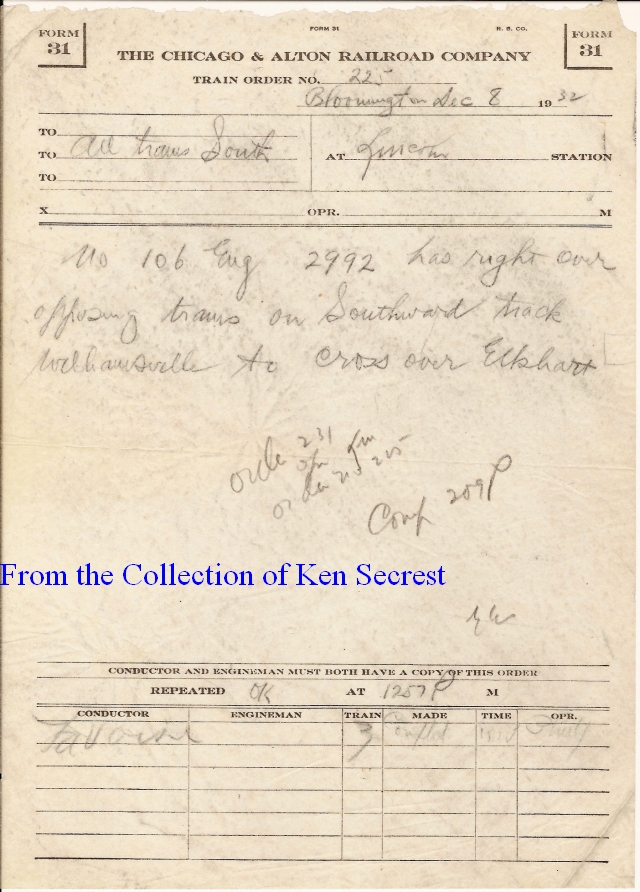 FORM 31 R. B. CO.
FORM
31
FORM
31
THE CHICAGO & ALTON RAILROAD COMPANY
TRAIN ORDER NO. 225
Bloomington Dec 8 1932
TO
TO All trains South AT Lincoln STATION
TO
X OPR. M
No 106 Eng 2992 has right over
opposing trains on Southward track
Williamsville to cross over Elkhart
order 231
order 205
Comp 209P
From the Collection of Ken Secrest
CONDUCTOR AND ENGINEMAN MUST BOTH HAVE A COPY OF THIS ORDER
REPEATED OK AT 1257P M
CONDUCTOR ENGINEMAN TRAIN MADE TIME OPR.
3 Complet